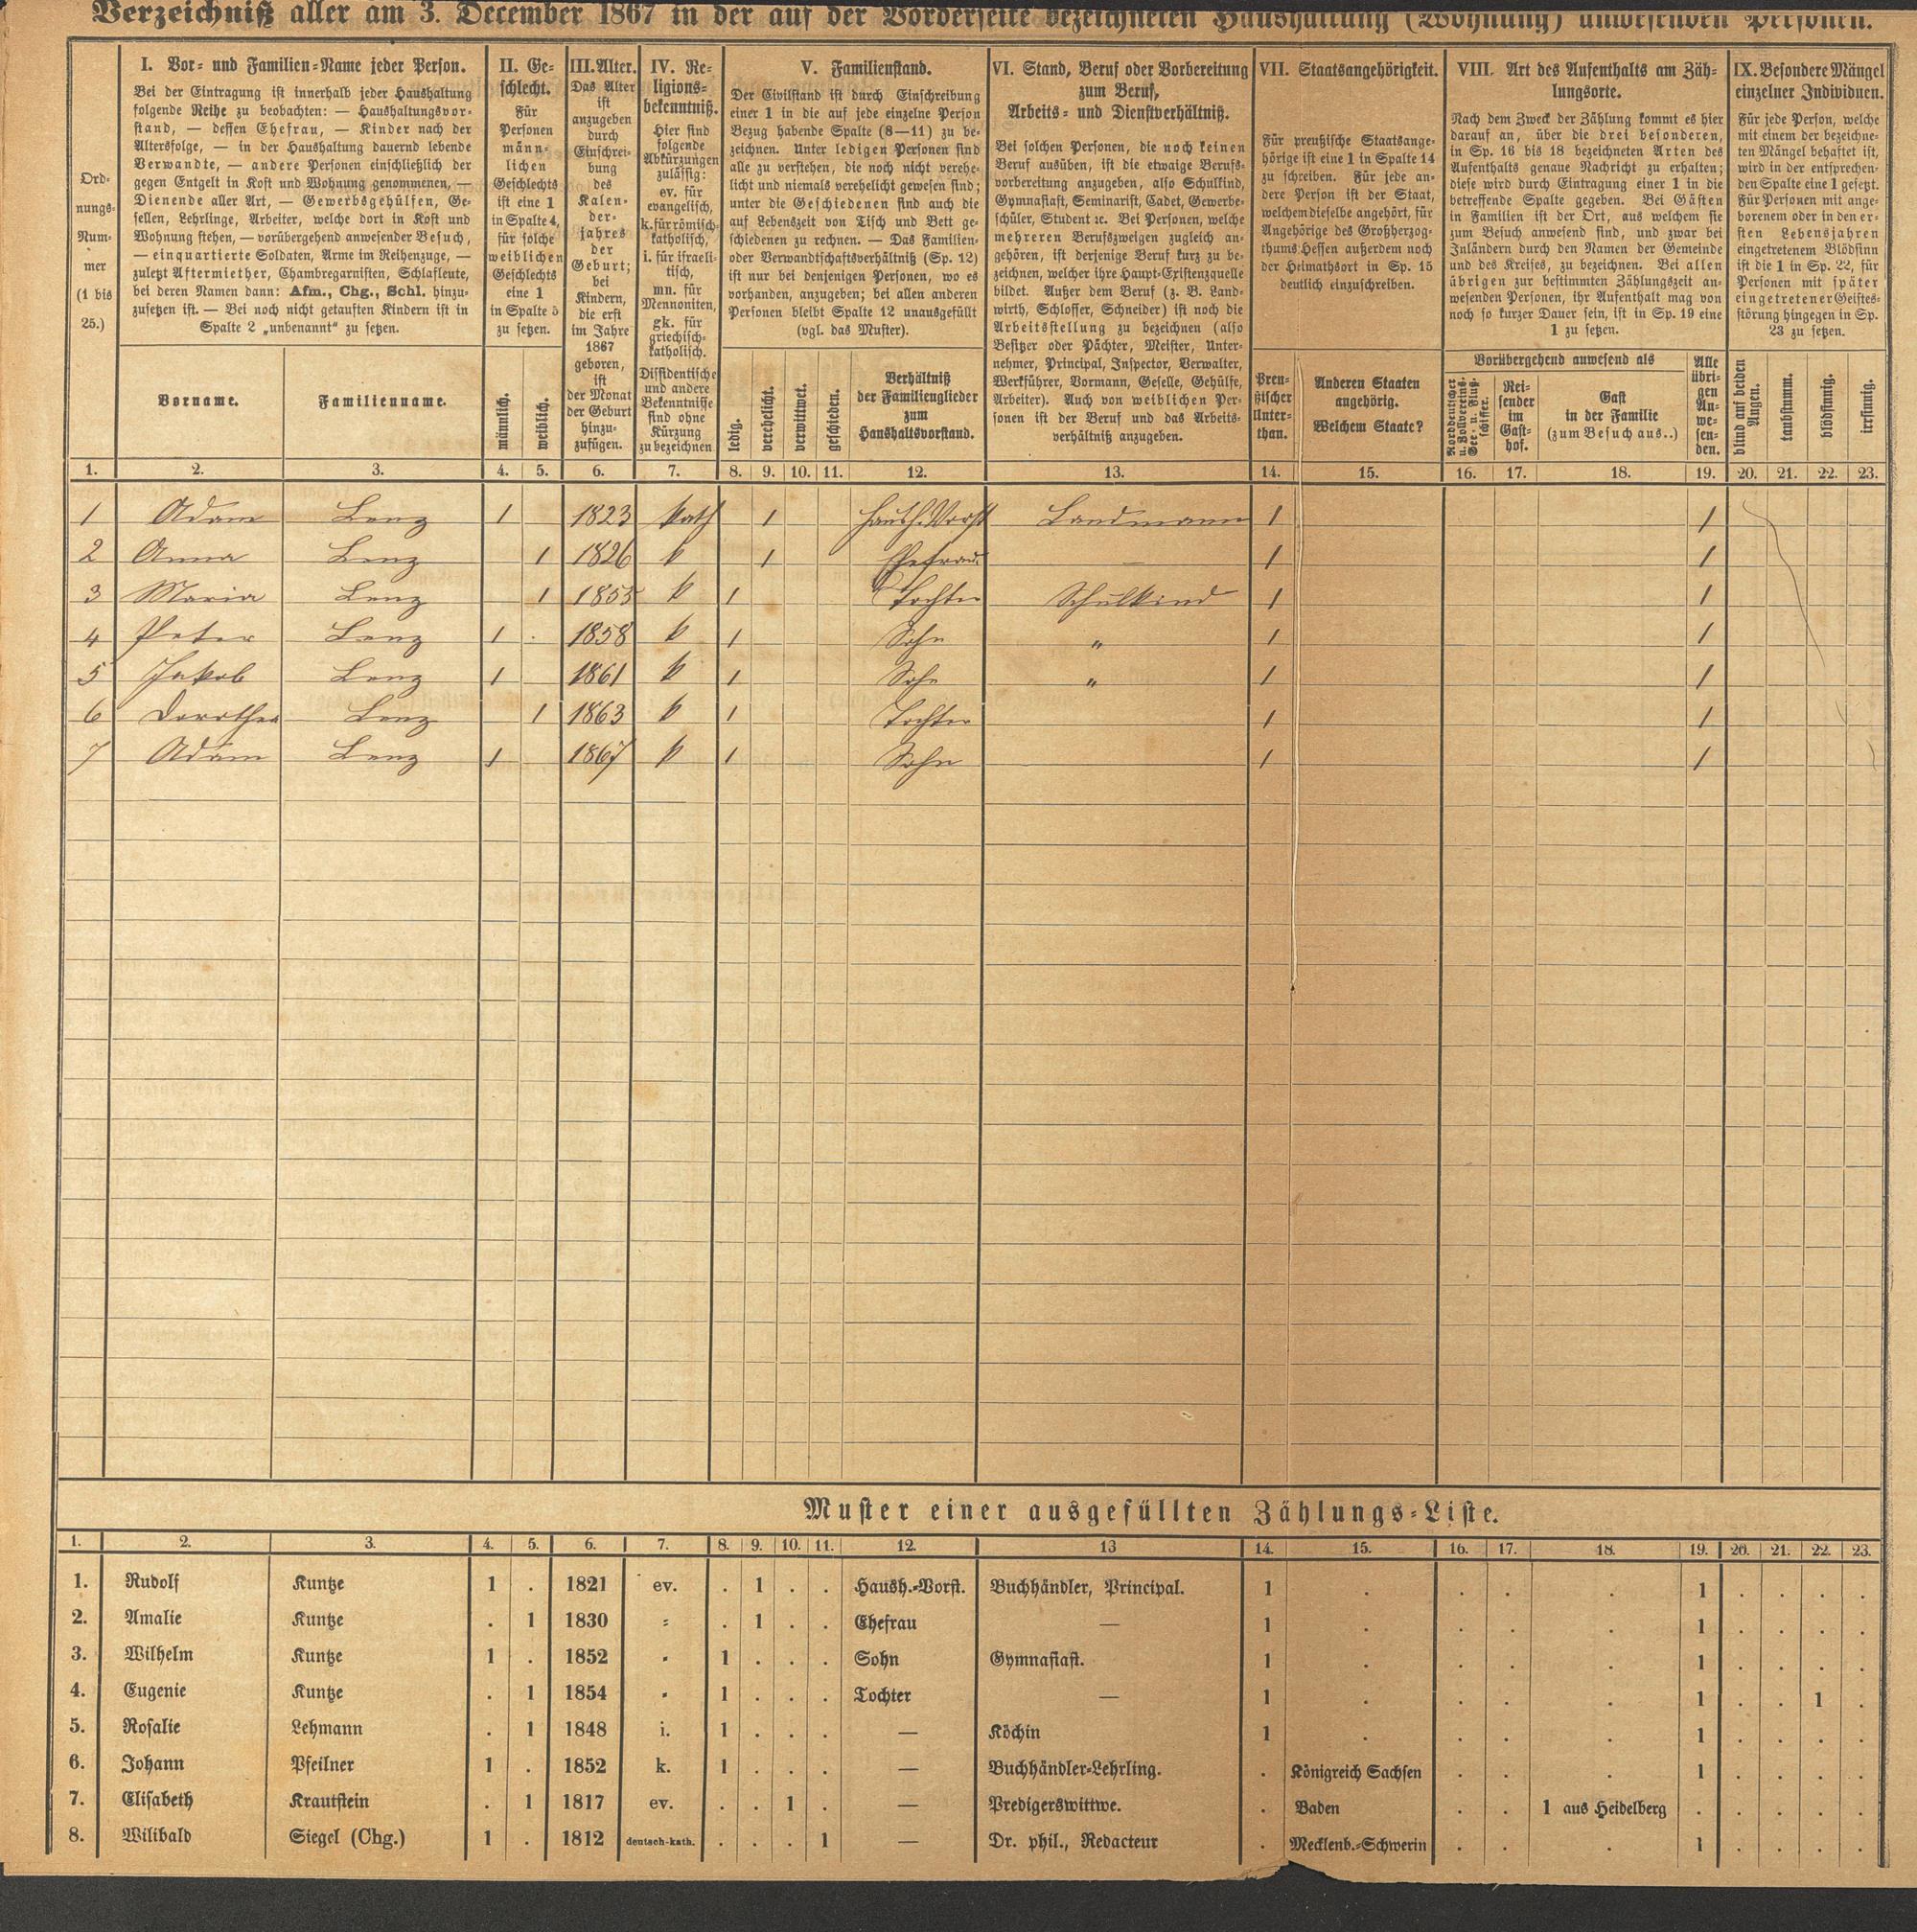 Verzeichniß aller am 3. December 1867 in der auf der Vorderseite bezeichneten Haushaltung (Wohnung) anwesenden Personen.
Ord-
nungs-
Num-
mer
(1 bis
25.)
I. Vor- und Familien-Name jeder Person.
Bei der Eintragung ist innerhalb jeder Haushaltung
folgende Reihe zu beobachten: — Haushaltungsvor-
stand, — dessen Ehefrau, — Kinder nach der
Altersfolge, — in der Haushaltung dauernd lebende
Verwandte, — andere Personen einschließlich der
gegen Entgelt in Kost und Wohnung genommenen, —
Dienende aller Art, — Gewerbsgehülfen, Ge-
sellen, Lehrlinge, Arbeiter, welche dort in Kost und
Wohnung stehen, — vorübergehend anwesender Besuch,
— einquartierte Soldaten, Arme im Reihenzuge, —
zuletzt Aftermiether, Chambregarnisten, Schlafleute,
bei deren Namen dann: Afm., Chg., Schl. hinzu-
zusetzen ist. — Bei noch nicht getauften Kindern ist in
Spalte 2 „unbenannt" zu setzen.
Vorname.
Familienname.
II. Ge-
schlecht.
Für
Personen
männ-
lichen
Geschlechts
ist eine 1
in Spalte 4,
für solche
weiblichen
Geschlechts
eine 1
in Spalte 5
zu setzen.
männlich.
weiblich.
III. Alter.
Das Alter
ist
anzugeben
durch
Einschrei-
bung
des
Kalen-
der-
jahres
der
Geburt;
bei
Kindern,
die erst
im Jahre
1867
geboren,
ist
der Monat
der Geburt
hinzu-
zufügen.
IV. Re-
ligions-
bekenntniß.
Hier sind
folgende
Abkürzungen
zulässig:
ev. für
evangelisch,
k. für römisch-
katholisch,
i. für israeli-
tisch,
mn. für
Mennoniten,
gk. für
griechisch-
katholisch.
Dissidentische
und andere
Bekenntnisse
sind ohne
Kürzung
zu bezeichnen
V. Familienstand.
Der Civilstand ist durch Einschreibung
einer 1 in die auf jede einzelne Person
Bezug habende Spalte (8—11) zu be-
zeichnen. Unter ledigen Personen sind
alle zu verstehen, die noch nicht verehe-
licht und niemals verehelicht gewesen sind;
unter die Geschiedenen sind auch die
auf Lebenszeit von Tisch und Bett ge-
schiedenen zu rechnen. — Das Familien-
oder Verwandtschaftsverhältniß (Sp. 12)
ist nur bei denjenigen Personen, wo es
vorhanden, anzugeben; bei allen anderen
Personen bleibt Spalte 12 unausgefüllt
(vgl. das Muster).
ledig.
verehelicht.
verwittwet.
geschieden.
Verhältniß
der Familienglieder
zum
Haushaltsvorstand.
VI. Stand, Beruf oder Vorbereitung
zum Beruf,
Arbeits- und Dienstverhältniß.
Bei solchen Personen, die noch keinen
Beruf ausüben, ist die etwaige Berufs-
vorbereitung anzugeben, also Schulkind,
Gymnasiast, Seminarist, Cadet, Gewerbe-
schüler, Student ꝛc. Bei Personen, welche
mehreren Berufszweigen zugleich an-
gehören, ist derjenige Beruf kurz zu be-
zeichnen, welcher ihre Haupt-Existenzquelle
bildet. Außer dem Beruf (z. B. Land-
wirth, Schlosser, Schneider) ist noch die
Arbeitsstellung zu bezeichnen (also
Besitzer oder Pächter, Meister, Unter-
nehmer, Principal, Inspector, Verwalter,
Werkführer, Vormann, Geselle, Gehülfe,
Arbeiter). Auch von weiblichen Per-
sonen ist der Beruf und das Arbeits-
verhältniß anzugeben.
VII. Staatsangehörigkeit.
Für preußische Staatsange-
hörige ist eine 1 in Spalte 14
zu schreiben. Für jede an-
dere Person ist der Staat,
welchem dieselbe angehört, für
Angehörige des Großherzog-
thums Hessen außerdem noch
der Heimathsort in Sp. 15
deutlich einzuschreiben.
Preu-
ßischer
Unter-
than.
Anderen Staaten
angehörig.
Welchem Staate?
VIII. Art des Aufenthalts am Zäh-
lungsorte.
Nach dem Zweck der Zählung kommt es hier
darauf an, über die drei besonderen,
in Sp. 16 bis 18 bezeichneten Arten des
Aufenthalts genaue Nachricht zu erhalten;
diese wird durch Eintragung einer 1 in die
betreffende Spalte gegeben. Bei Gästen
in Familien ist der Ort, aus welchem sie
zum Besuch anwesend sind, und zwar bei
Inländern durch den Namen der Gemeinde
und des Kreises, zu bezeichnen. Bei allen
übrigen zur bestimmten Zählungszeit an-
wesenden Personen, ihr Aufenthalt mag von
noch so kurzer Dauer sein, ist in Sp. 19 eine
1 zu setzen.
Vorübergehend anwesend als
Norddeutscher
u. Zollvereins-
See- u. Fluß-
schiffer.
Rei-
sender
im
Gast-
hof.
Gast
in der Familie
(zum Besuch aus..)
Alle
übri-
gen
An-
we-
sen-
den.
IX. Besondere Mängel
einzelner Individuen.
Für jede Person, welche
mit einem der bezeichne-
ten Mängel behaftet ist,
wird in der entsprechen-
den Spalte eine 1 gesetzt.
Für Personen mit ange-
borenem oder in den er-
sten Lebensjahren
eingetretenem Blödsinn
ist die 1 in Sp. 22, für
Personen mit später
eingetretener Geistes-
störung hingegen in Sp.
23 zu setzen.
blind auf beiden
Augen.
taubstumm.
blödsinnig.
irrsinnig.
1. 2. 3. 4. 5. 6. 7. 8. 9. 10. 11. 12. 13. 14. 15. 16. 17. 18. 19. 20. 21. 22. 23.
1 Adam Lenz 1 1823 kath 1 Haush. Vorst Landmann 1 1
2 Anna Lenz 1 1826 k 1 Ehefrau — 1 1
3 Maria Lenz 1 1855 k 1 Tochter Schulkind 1 1
4 Peter Lenz 1 . 1858 k 1 Sohn " 1 1
5 Jakob Lenz 1 1861 k 1 Sohn " 1 1
6 Dorothea Lenz 1 1863 k 1 Tochter 1 1
7 Adam Lenz 1 1867 k 1 Sohn 1 1
Muster einer ausgefüllten Zählungs-Liste.
1. 2. 3. 4. 5. 6. 7. 8. 9. 10. 11. 12. 13 14. 15. 16. 17. 18. 19. 20. 21. 22. 23.
1. Rudolf Kuntze 1 . 1821 ev. . 1 . . Haush.-Vorst. Buchhändler, Principal. 1 . . . . 1 . . . .
2. Amalie Kuntze . 1 1830 = . 1 . . Ehefrau — 1 . . . . 1 . . . .
3. Wilhelm Kuntze 1 . 1852 " 1 . . . Sohn Gymnasiast. 1 . . . . 1 . . . .
4. Eugenie Kuntze . 1 1854 " 1 . . . Tochter — 1 . . . . 1 . . 1 .
5. Rosalie Lehmann . 1 1848 i. 1 . . . — Köchin 1 . . . . 1 . . . .
6. Johann Pfeilner 1 . 1852 k. 1 . . . — Buchhändler-Lehrling. . Königreich Sachsen . . . 1 . . . .
7. Elisabeth Krautstein . 1 1817 ev. . . 1 . — Predigerswittwe. . Baden . . 1 aus Heidelberg . . . . .
8. Wilibald Siegel (Chg.) 1 . 1812 deutsch-kath. . . . 1 — Dr. phil., Redacteur . Mecklenb.-Schwerin . . . 1 . . . .